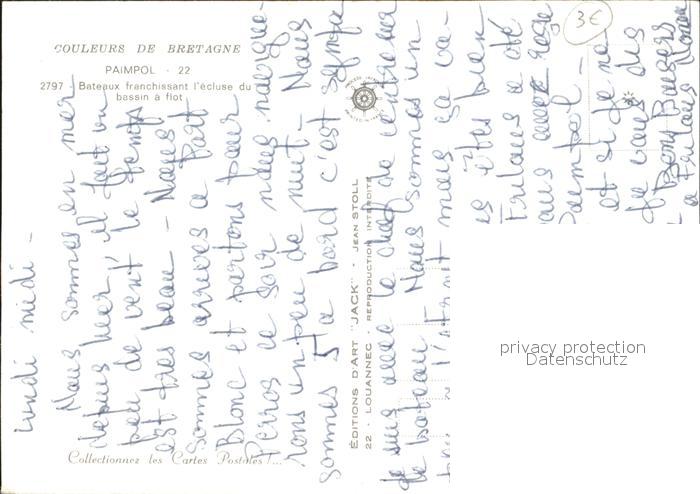 COULEURS DE BRETAGNE
PAIMPOL - 22
2797 - Bateaux franchissant l'écluse du
bassin à flot
3€
Lundi midi -
Nous sommes en mer
depuis hier, il fait un
peu de vent le temps
est très beau - Nous
sommes arrivés à Port
Blanc et partons pour
Perros ce soir nous navigue-
rons un peu de nuit - Nous
sommes 5 à bord c'est sympa
je suis avec le chef de
le bateau. Nous sommes un
mais ça va-
es êtes bien
a été
avec
Paimpol -
et si je ne
de vous des
Bons Baisers
ÉDITIONS D'ART "JACK" - JEAN STOLL
22 - LOUANNEC - REPRODUCTION INTERDITE
Collectionnez les Cartes Postales !...
privacy protection
Datenschutz